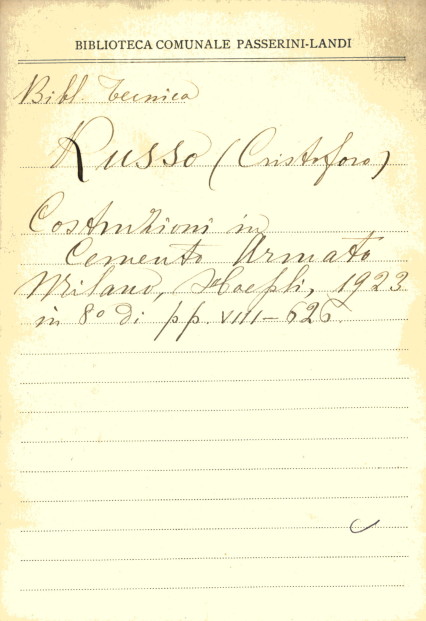 BIBLIOTECA COMUNALE PASSERINI-LANDI
Bibl Tecnica
Russo (Cristoforo)
Costruzioni in
Cemento Armato
Milano, Hoepli, 1923
in 8º di pp. VIII-626.